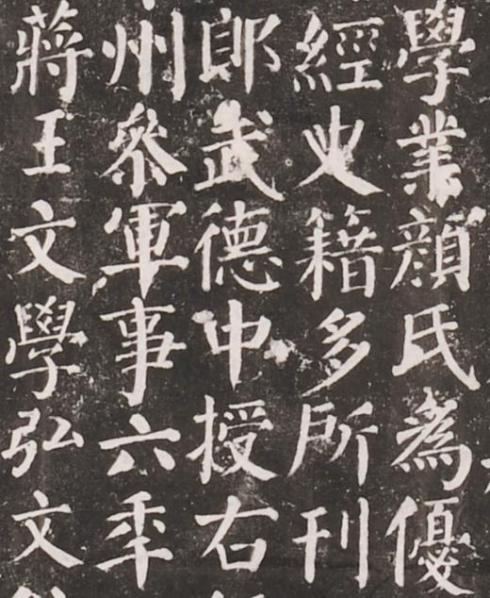 學業顏氏為優
經史籍多所刊
郎武德中授右
州參軍事六年
蔣王文學弘文